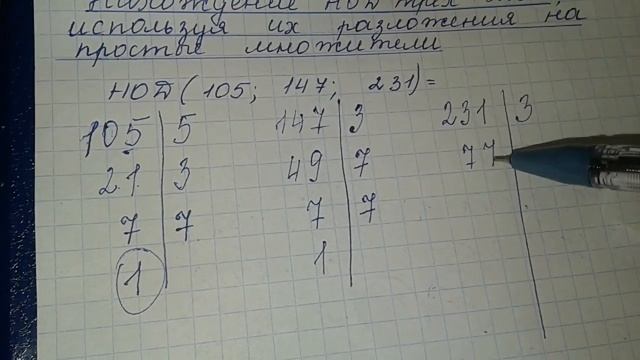 Нахождение НОД трех
используя их разложения на
простые множители
НОД(105; 147; 231)=
105 | 5 147 | 3 231 | 3
21 | 3 49 | 7 77
7 | 7 7 | 7
1 1